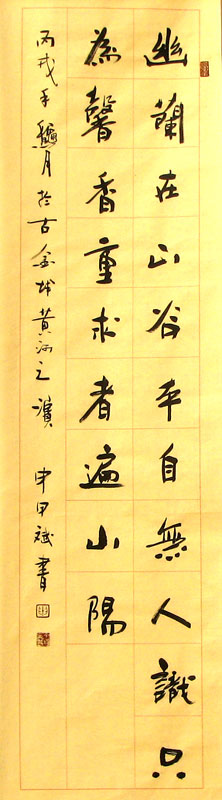 幽蘭在山谷本自無人識只
為馨香重求者遍山隅
丙戌年月於古金城黃河之濱 申甲斌書